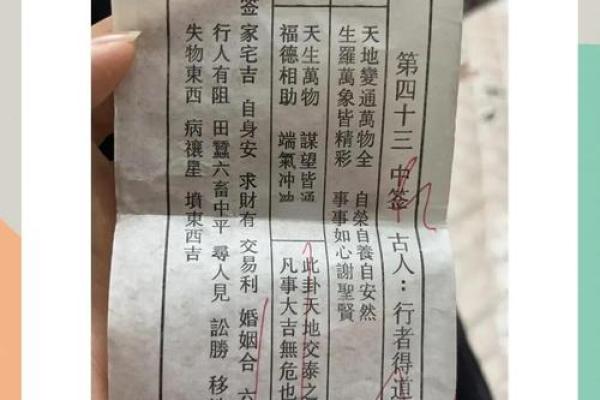 第四十三 中签 古人：行者得道
天地變通萬物全 自榮自養自安然
生羅萬象皆精彩 事事如心謝聖賢
天生萬物 謀望皆通
福德相助 端氣冲冲
此卦天地交泰之
凡事大吉無危也
签
家宅吉 自身安 求財有 交易利 婚姻合 六
行人有阻 田蠶六畜中平 尋人見 訟勝 移
失物東西 病禳星 墳東西吉